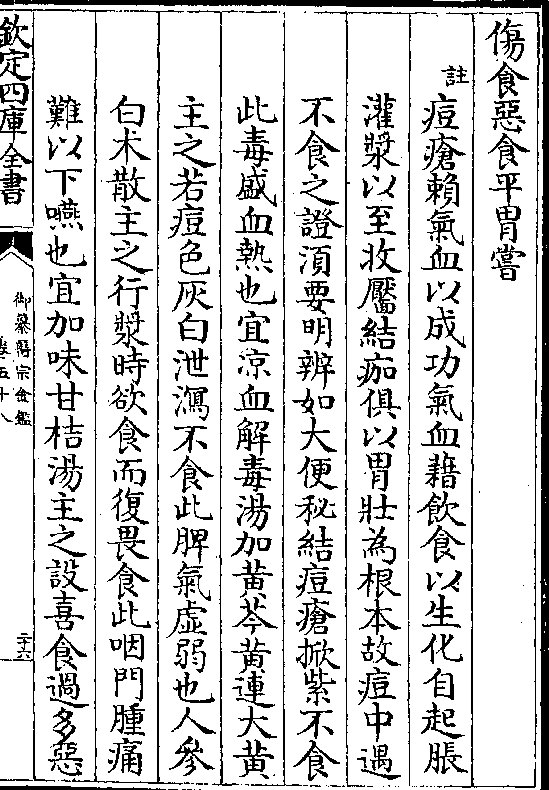 傷食惡食平胃嘗
註
痘瘡賴氣血以成功氣血藉飲食以生化自起脹
灌漿以至收靨結痂俱以胃壯為根本故痘中遇
不食之證須要明辨如大便秘結痘瘡掀紫不食
此毒盛血熱也宜凉血解毒湯加黃芩黃連大黃
主之若痘色灰白泄瀉不食此脾氣虛弱也人參
白术散主之行漿時欲食而復畏食此咽門腫痛
難以下嚥也宜加味甘桔湯主之設喜食過多惡
欽定四庫全書
御纂醫宗金鑑
卷五十八
二十六